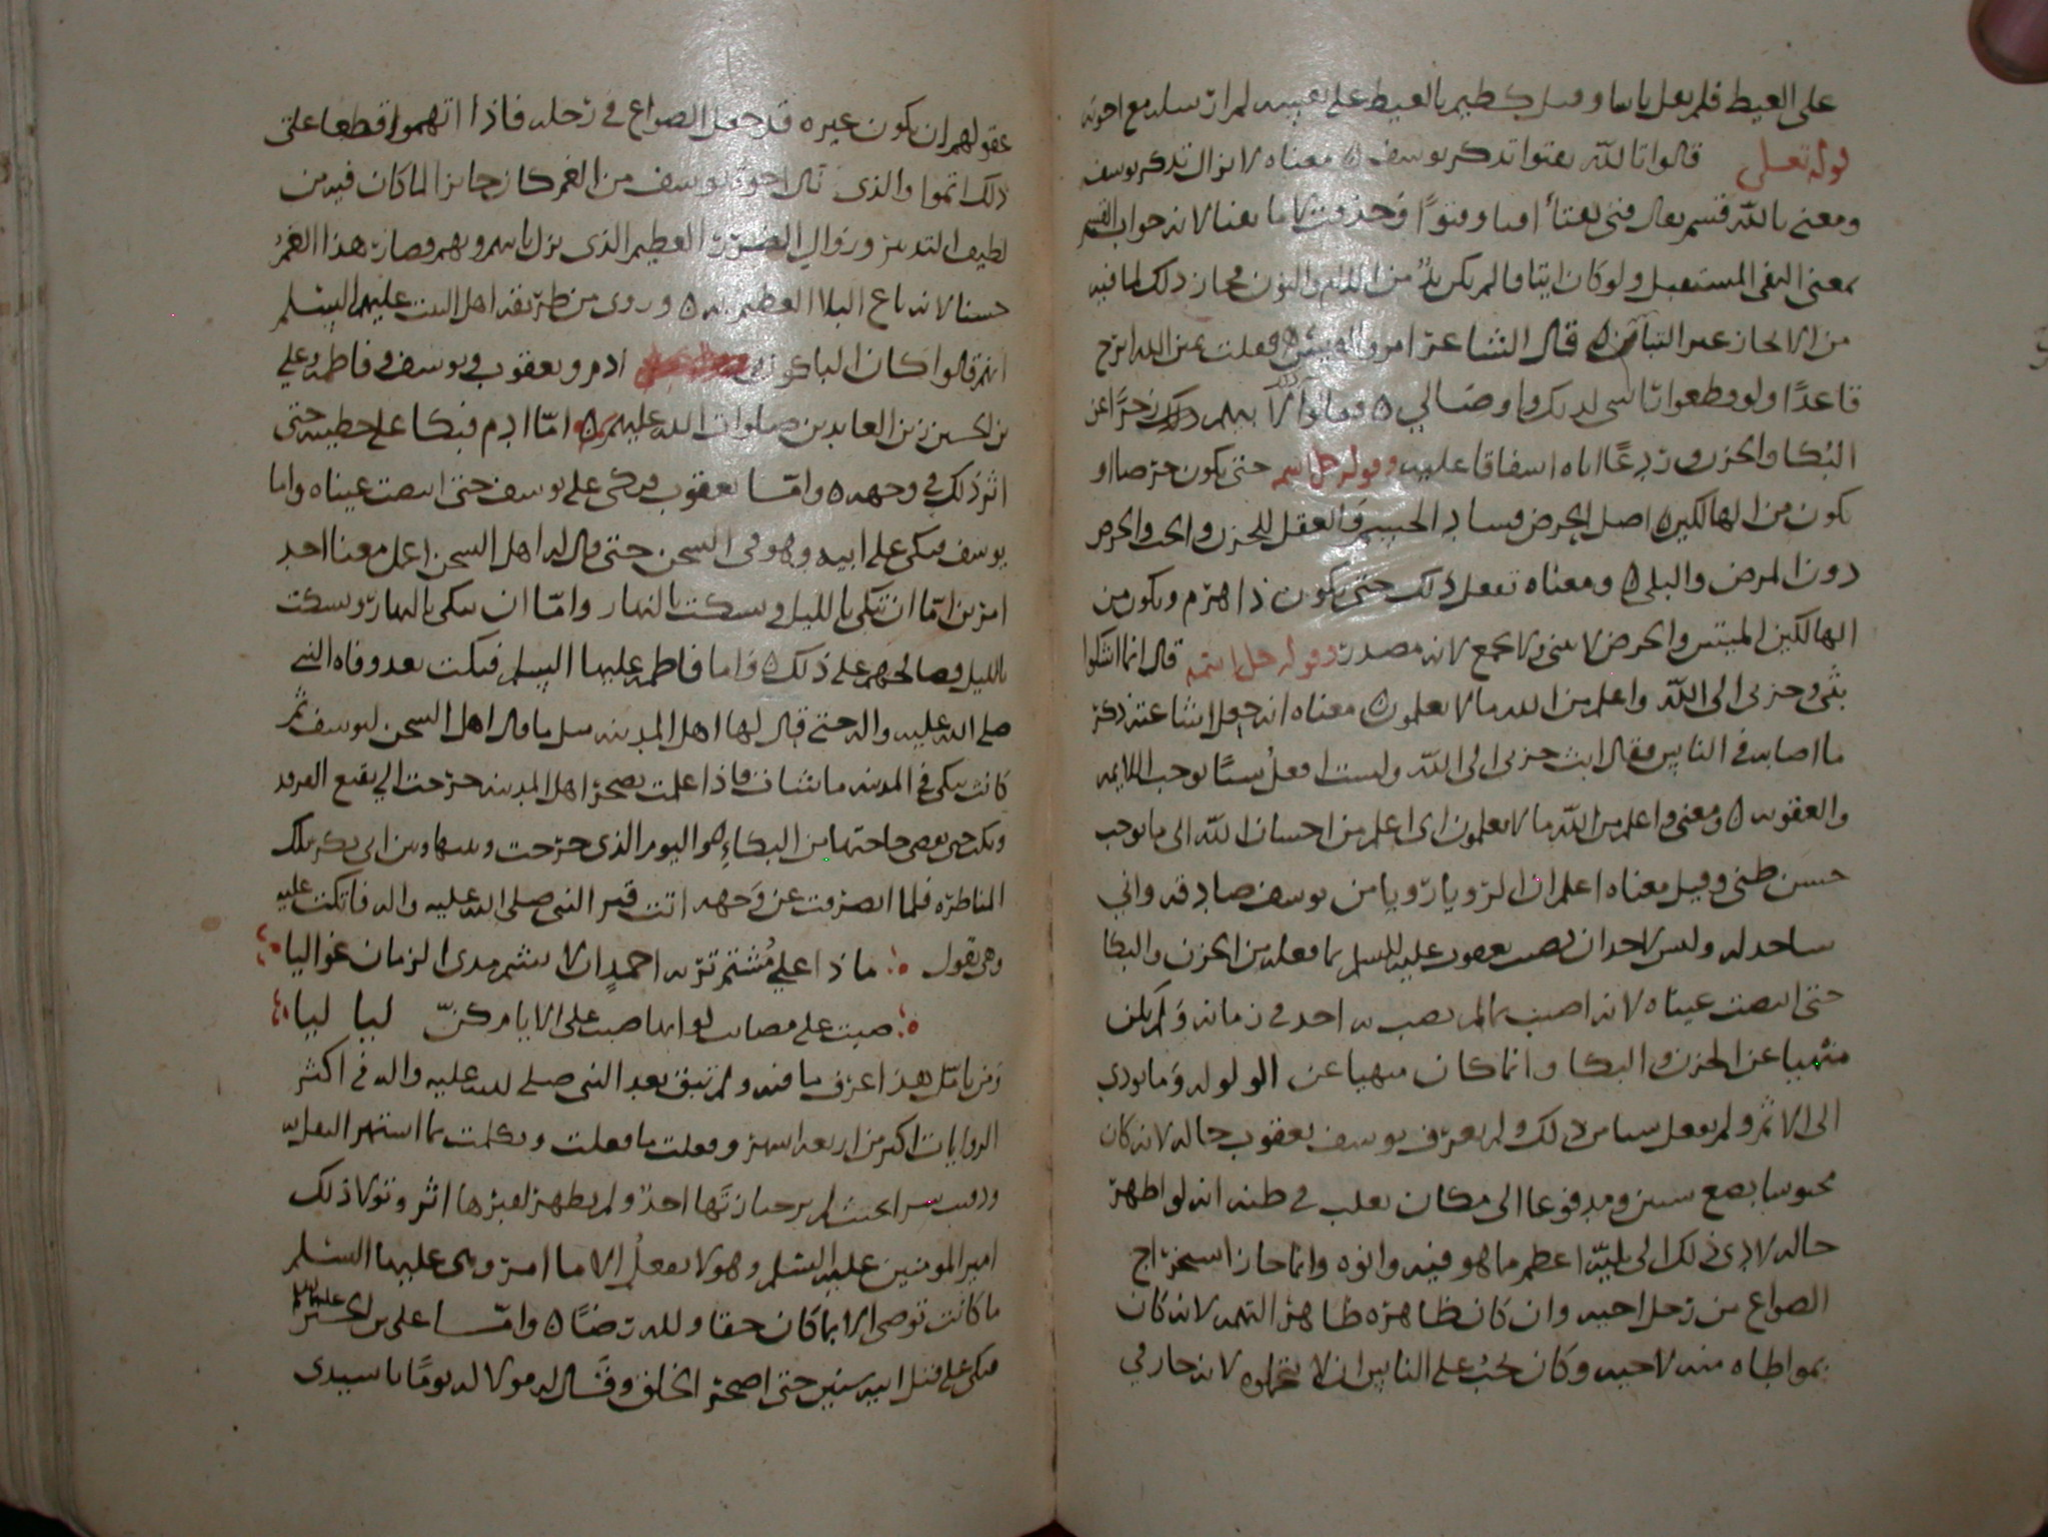 على الغيظ فلم يقل باسا وقيل كظيم بالغيظ على نفسه لم ارتسله مع اخوته
قوله تعالى قالوا تالله تفتوا تذكر يوسف معناه لا تزال تذكر يوسف
ومعنى بالله قسم يقال فتى يفتأ فتيا وفتوًا وحذفت لا ما يفتا لانه جواب القسم
بمعنى النفى المستقبل ولو كان اثباتا لم يكن بدٌ من اللام والنون فجاز ذلك لما فيه
من الايجاز عير التباس قال الشاعر امرو القيس فقلت يمين الله ابرح
قاعدًا ولو قطعوا راسى لديك واوصالي وقالوا لابيهم ذلك زجرًا عن
البكا والحزن وردعًا اياه اسفاقا عليه وقوله جل اسمه حتى يكون حرضا او
يكون من الهالكين اصل الحرض فساد الجسم والعقل للحزن والحب والحرض
دون المرض والبلى ومعناه تفعل ذلك حتى تكون ذا هرم ويكون من
الهالكين الميتين والحرض لا يثنى ولا يجمع لانه مصدر وقوله جل اسمه قال انما اشكوا
بثى وحزنى الى الله واعلم من الله ما لا تعلمون معناه انه جعل اشاعته ذكر
ما اصابه في الناس فقال ابث حزنى الى الله ولست افعل شيئًا يوجب اللايمه
والعقوبه ومعنى واعلم من الله ما لا تعلمون اى اعلم من احسان الله الى ما يوجب
حسن ظنى وقيل معناه اعلم ان الرويا رويا من يوسف صادقه وانى
ساجد له وليس لاحد ان يعيب يعقوب عليه السلم بما فعله من الحزن والبكا
حتى ابيضت عيناه لانه اصيب بما لم يصب به احد في زمانه ولم يكن
منهيا عن الحزن والبكا وانما كان منهيا عن الولوله وما يودي
الى الاثم ولم يفعل شيا من ذلك ولم يعرف يوسف يعقوب حاله لانه كان
محبوسا بضع سنين ومدفوعا الى مكان يغلب في ظنه انه لو اظهر
حاله لادى ذلك الى بلية اعظم ما هو فيه وانوه وانما جاز استخراج
الصواع من رحل اخيه وان كان ظاهره ظاهر التهمه لانه كان
بمواطاه منه لاخيه وكان يجب على الناس ان لا يتهموه لانه جاز في
عقولهم ان يكون غيره قد جعل الصواع في رحله فاذا اتهموا قطعا على
ذلك اثموا والذى نال اخوة يوسف من الغم كان جايزا لما كان فيه من
لطيف التدبير وزوال الضرر العظيم الذى نزل بابيه وبهم فصار هذا الغم
حسنا لانه باع البلا العظيم به وروى من طريقه اهل البيت عليهم السلم
انهم قالوا كان الباكون ادم ويعقوب ويوسف وفاطمه وعلي
بن الحسين زين العابدين صلوات الله عليهم امّا ادم فبكا على خطيته حتى
اثر ذلك في وجهه وامّا يعقوب فبكى على يوسف حتى ابيضت عيناه واما
يوسف فبكى على ابيه وهو فى السجن حتى قال له اهل السجن اعمل معنا احد
امرين امّا ان تبكى بالليل وتسكت بالنهار وامّا ان تبكى بالنهار وتسكت
بالليل فصالحهم على ذلك واما فاطمه عليها السلم فبكت بعد وفاه النبي
صلى الله عليه واله حتى قال لها اهل المدينه مثل ما قال اهل السجن ليوسف ثم
كانت تبكى في المدينه ما شات فاذا علمت بضجر اهل المدينه خرجت الي بقيع الغرقد
وبكت حتى تقضى حاجتها من البكاء هو اليوم الذى خرجت وبينها وبين ابى بكر تلك
المناظره فلما انصرفت عن وجهه اتت قبر النبى صلى الله عليه واله فاتكت عليه
وهى تقول ماذا على مُشتم تربه احمدٍ ان لا يشم مدى الزمان غواليا
صبت على مصائب لو انها صبت على الايام كنّ ليا ليا
ومن تامّل هذا عرف ما فيه ولم تبق بعد النبى صلى الله عليه واله في اكثر
الروايات اكثر من اربعه اشهر وفعلت ما فعلت وتكلمت بما اشتهر النقل به
ودفنت سرا بحيث لم يرجنازتها احدٌ ولم يظهر لقبرها اثر وتولا ذلك
امير المومنين عليه السلم وهو لا يفعلُ الا ما امر وهى عليها السلم
ما كانت توصى الا بما كان حقا ولله رضًا وامّا على بن الحسين عليهما السلم
فبكى على قتل ابيه سنين حتى اضجر الخلق وقال له مولا له يومًا يا سيدى